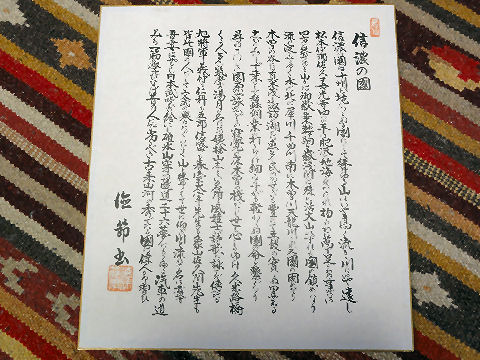 信濃の國
信濃の國は十州に境つらぬる國にして聳ゆる山はいや高く流るる川はいや遠し
松本伊那佐久善光寺四つの平は肥沃の地海こそなけれ物さわに萬足らわぬ事ぞなき
四方に聳ゆる山々は御嶽乗鞍駒ヶ岳浅間は殊に活火山いずれも國の鎮めなり
流れ淀まずゆく水は北に犀川千曲川南に木曽川天竜川これまた國の固めなり
木曽の谷には真木茂り諏訪の湖には魚多し民のかせぎも豊かにて五穀の実らぬ里やある
しかのみならず桑とりて蚕飼いの業の打ちひらけ細きよすがも軽からぬ國の命を繋ぐなり
尋ねまほしき園原や旅のやどりの寝覚の床木曽の棧かけし世も心してゆけ久米路橋
くる人多き筑摩の湯月の名にたつ姨捨山しるき名所と風雅士が詩歌に詠てぞ伝えたる
旭将軍義仲も仁科の五郎信盛も春台太宰先生も象山佐久間先生も
皆此國の人にして文武の誉たぐいなく山と聳えて世に仰ぎ川と流れて名は尽ず
吾妻はやとし日本武嘆き給いし碓氷山穿つ隧道二十六夢にもこゆる汽車の道
みち一筋に学びなば昔の人にや劣るべき古来山河の秀でたる國は偉人のある習い
書